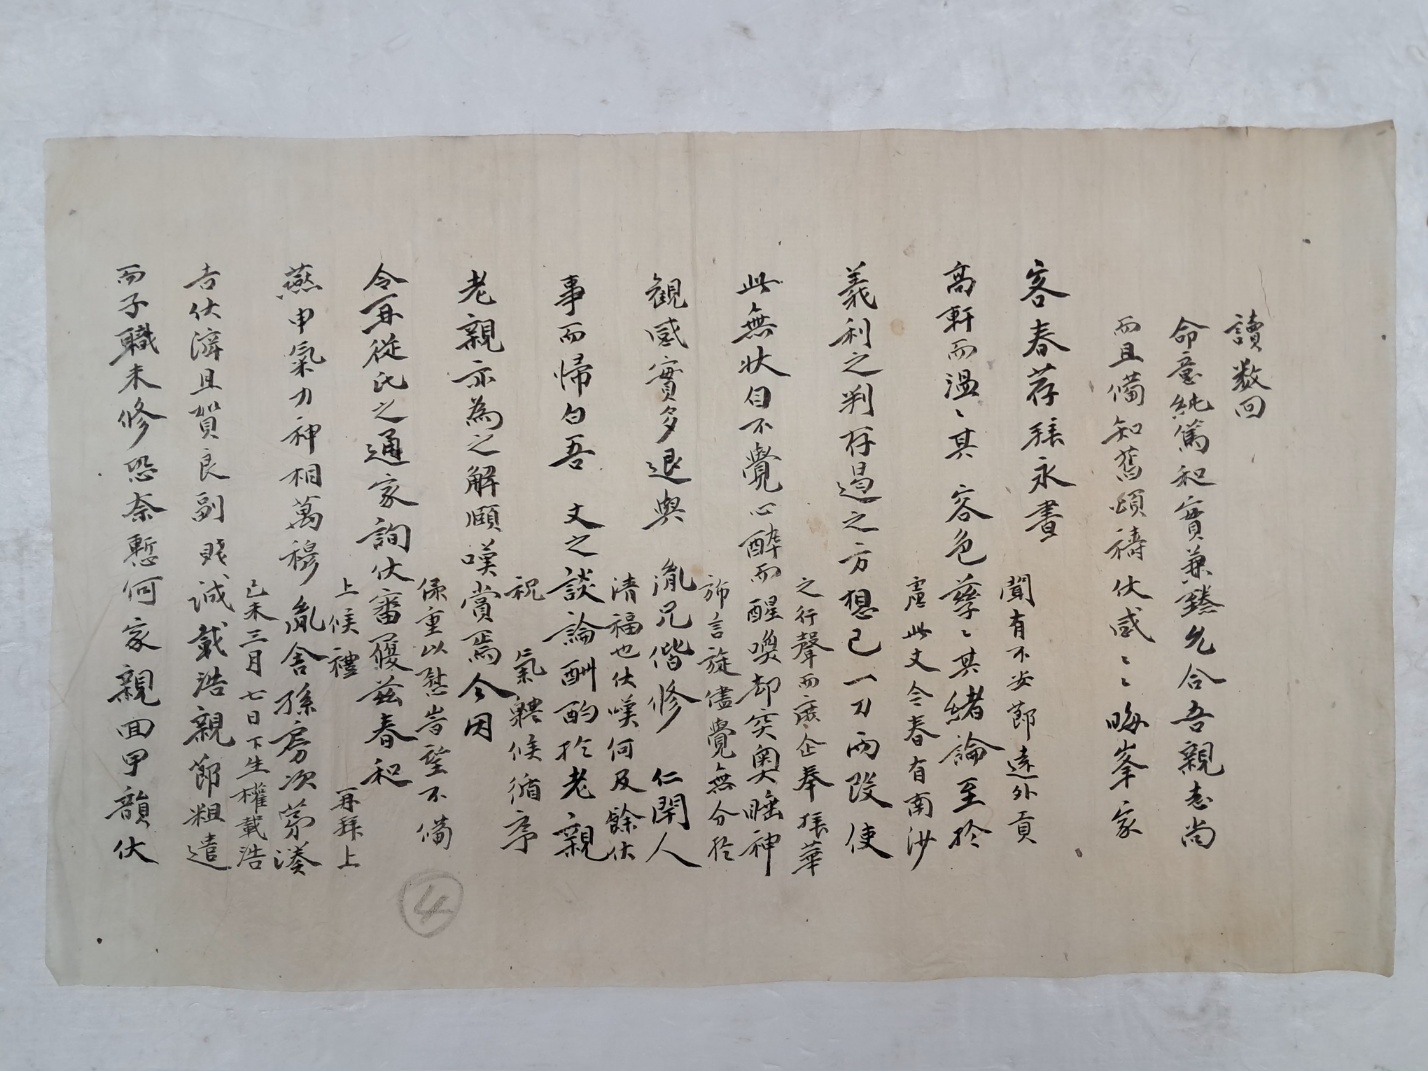 客春荐拜永晝
高軒而溫〻其容色孳〻其緒論至於
義利之判存遏之方想已一刀兩段使
此無狀自不覺心醉而醒喚却突奧睡神
觀感實多退與 胤兄偕修 仁閈人
事而歸白吾 丈之談論酬酌於老親
老親亦為之解頤嘆賞焉今因
令再從氏之通家詢伏審履玆春和
燕申氣力神相萬穆 胤舍孫房次第湊
吉伏溸且賀良副賤誠載浩親節粗遣
而子職未修恐奈慙何家親回甲韻伏
讀数回
命意純篤和實兼臻允合吾親志尚
而且備知舊頌禱伏感〻晦峯家
聞有不安節遠外貢
慮此丈今春有南沙
之行聲而企奉拜華
旆言旋儘覺無分於
清福也伏嘆何及餘伏
祝 氣軆候循序
保重以慰望不備
上候禮 再拜上
己未三月七日下生權載浩
4